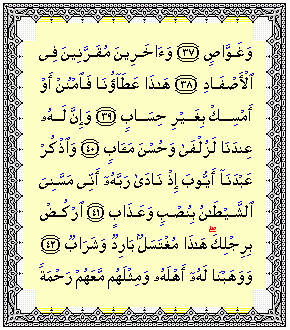 وَغَوَّاصٍ ﴿٣٧﴾ وَءَاخَرِينَ مُقَرَّنِينَ فِى
ٱلْأَصْفَادِ ﴿٣٨﴾ هَـٰذَا عَطَآؤُنَا فَٱمْنُنْ أَوْ
أَمْسِكْ بِغَيْرِ حِسَابٍ ﴿٣٩﴾ وَإِنَّ لَهُۥ
عِندَنَا لَزُلْفَىٰ وَحُسْنَ مَـَٔابٍ ﴿٤٠﴾ وَٱذْكُرْ
عَبْدَنَآ أَيُّوبَ إِذْ نَادَىٰ رَبَّهُۥٓ أَنِّى مَسَّنِىَ
ٱلشَّيْطَـٰنُ بِنُصْبٍ وَعَذَابٍ ﴿٤١﴾ ٱرْكُضْ
بِرِجْلِكَ ۖ هَـٰذَا مُغْتَسَلٌۢ بَارِدٌ وَشَرَابٌ ﴿٤٢﴾
وَوَهَبْنَا لَهُۥٓ أَهْلَهُۥ وَمِثْلَهُم مَّعَهُمْ رَحْمَةً